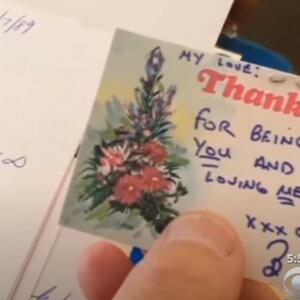 7/89
MY LOVE:
Thank
FOR BEING
YOU AND
LOVING ME
xxx
5:5